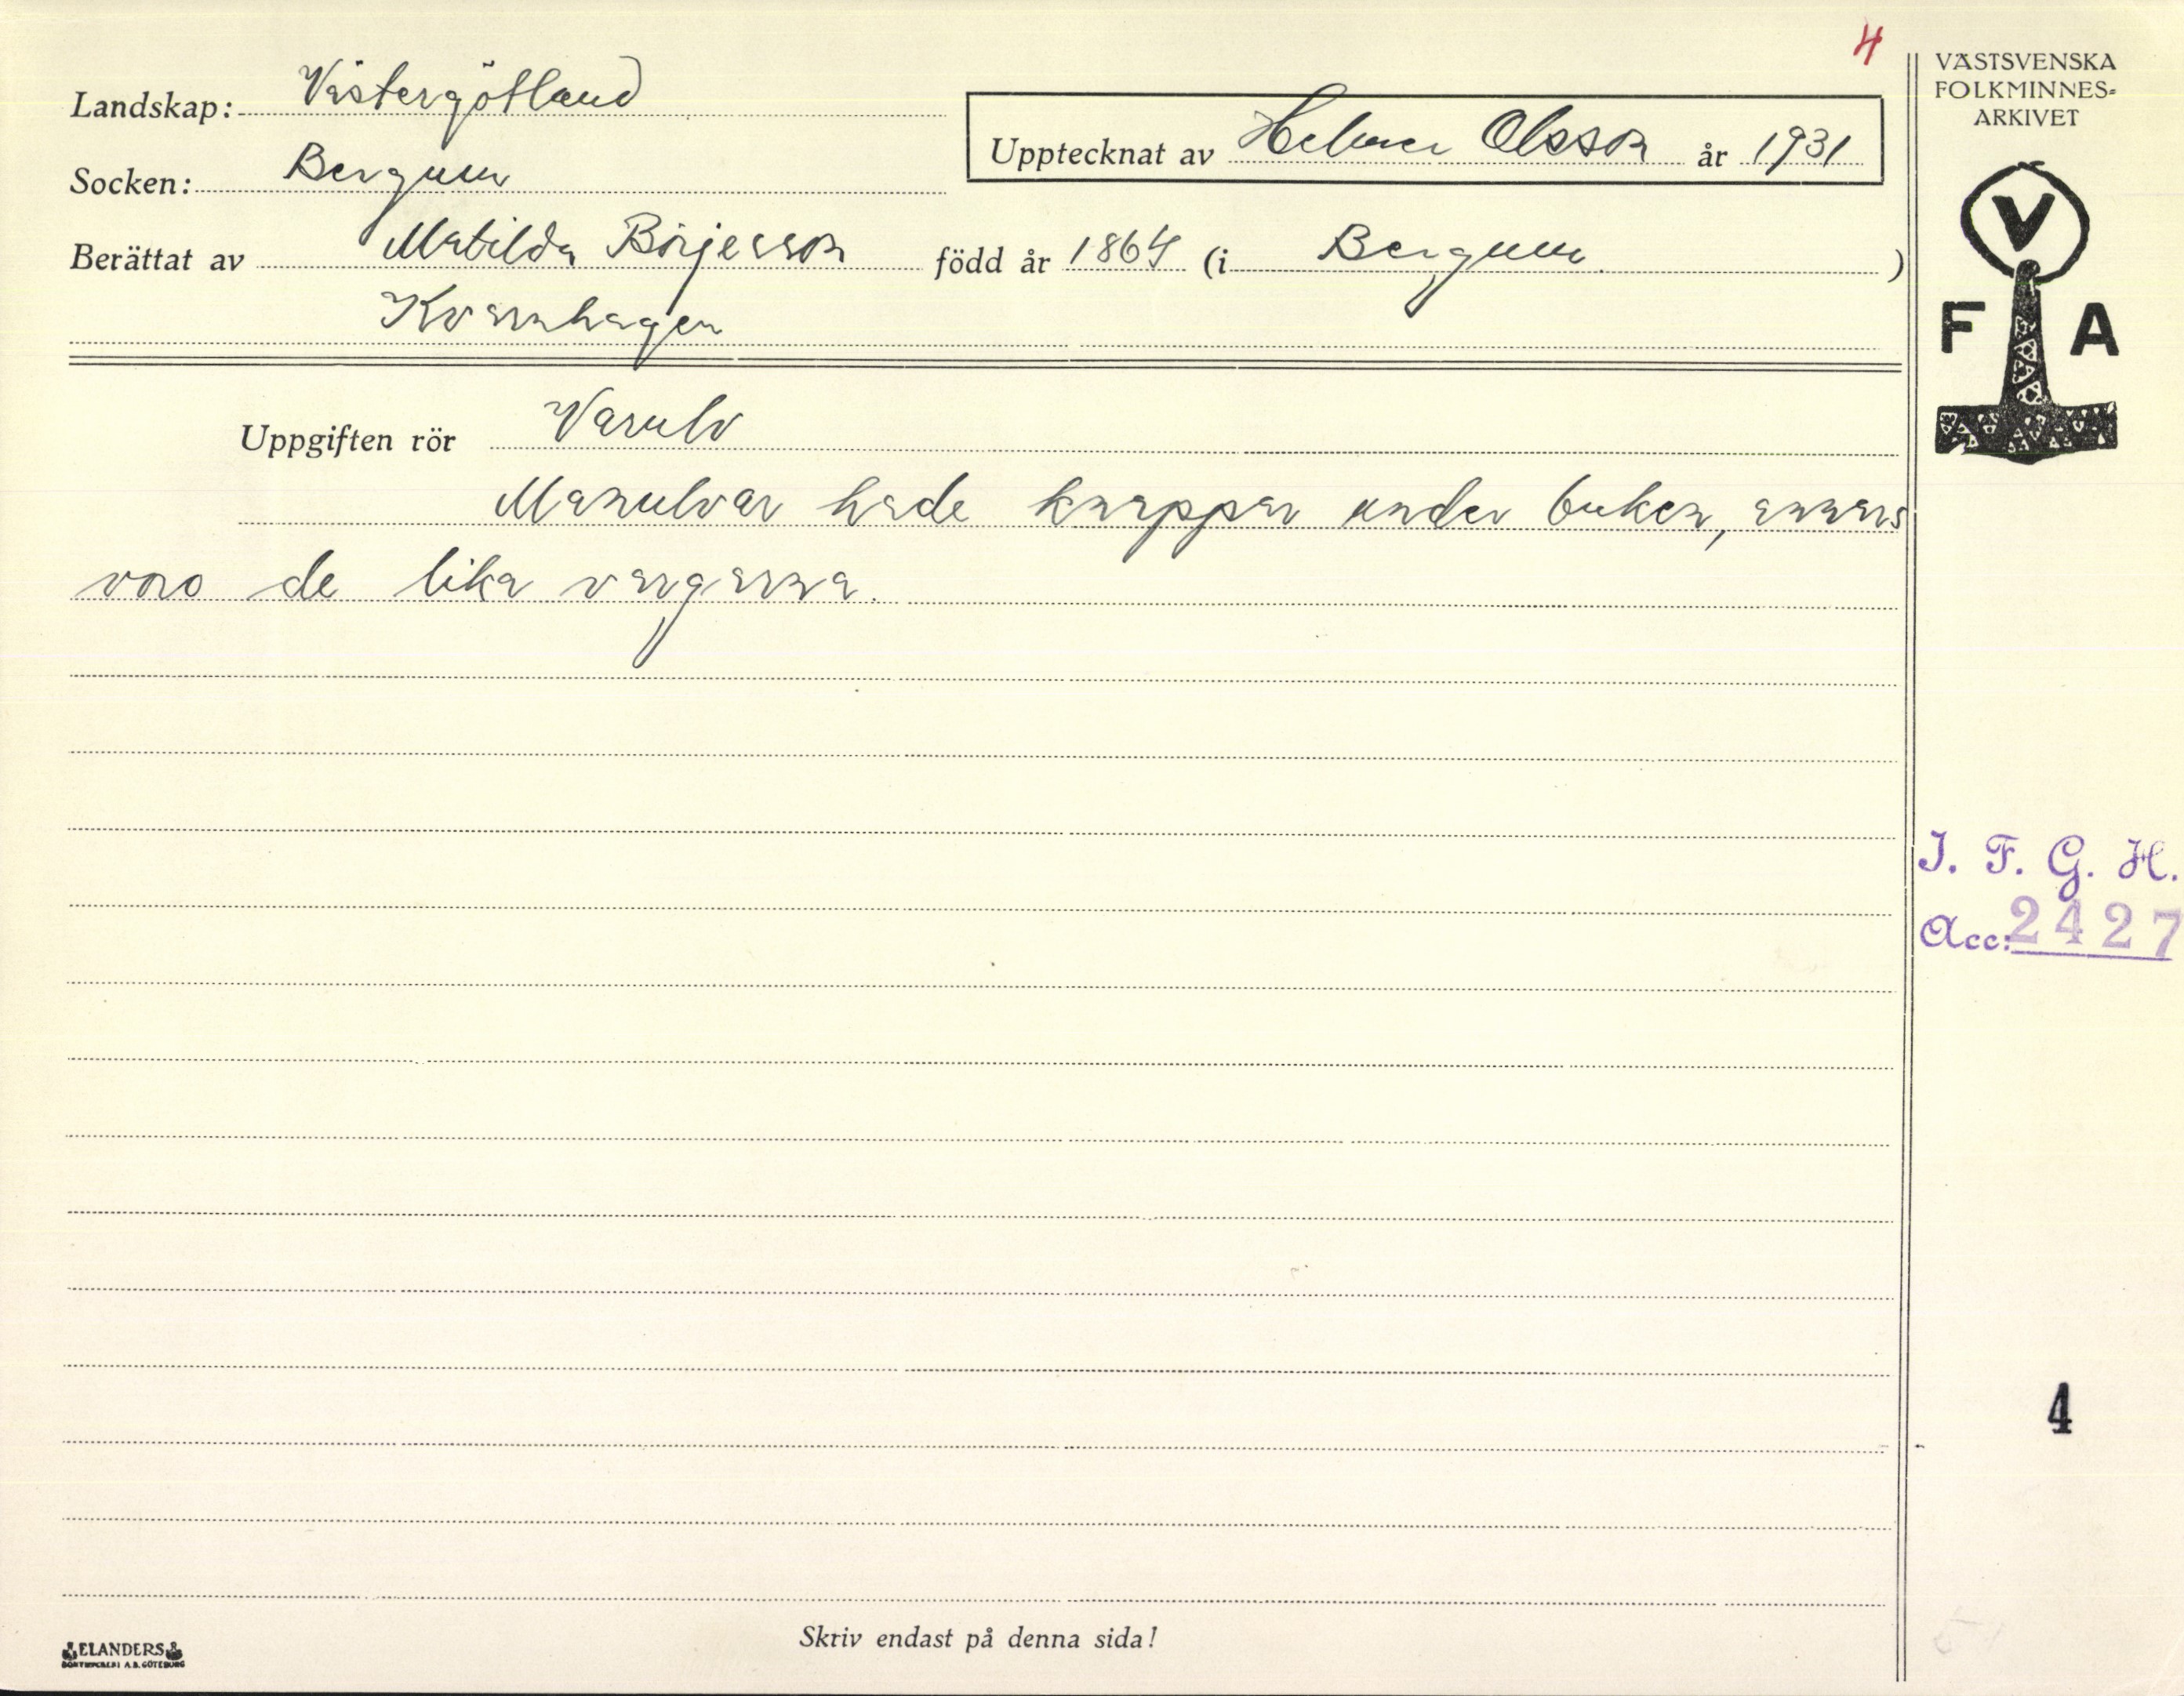 4
Landskap: Västergötland
VÄSTSVENSKA
FOLKMINNES-
ARKIVET
Upptecknat av Helmer Olsson år 1931
Socken: Bergum
Berättat av Matilda Börjesson född år 1864 (i Bergum.)
Kvarnhagen
V
F A
Uppgiften rör Varulv
Manulvar hade knappar under buken, annars
voro de lika vargarna.
I. F. G. H.
Acc: 2427
4
Skriv endast på denna sida!
ELANDERS
BOKTRYCKERI A.B. GÖTEBORG